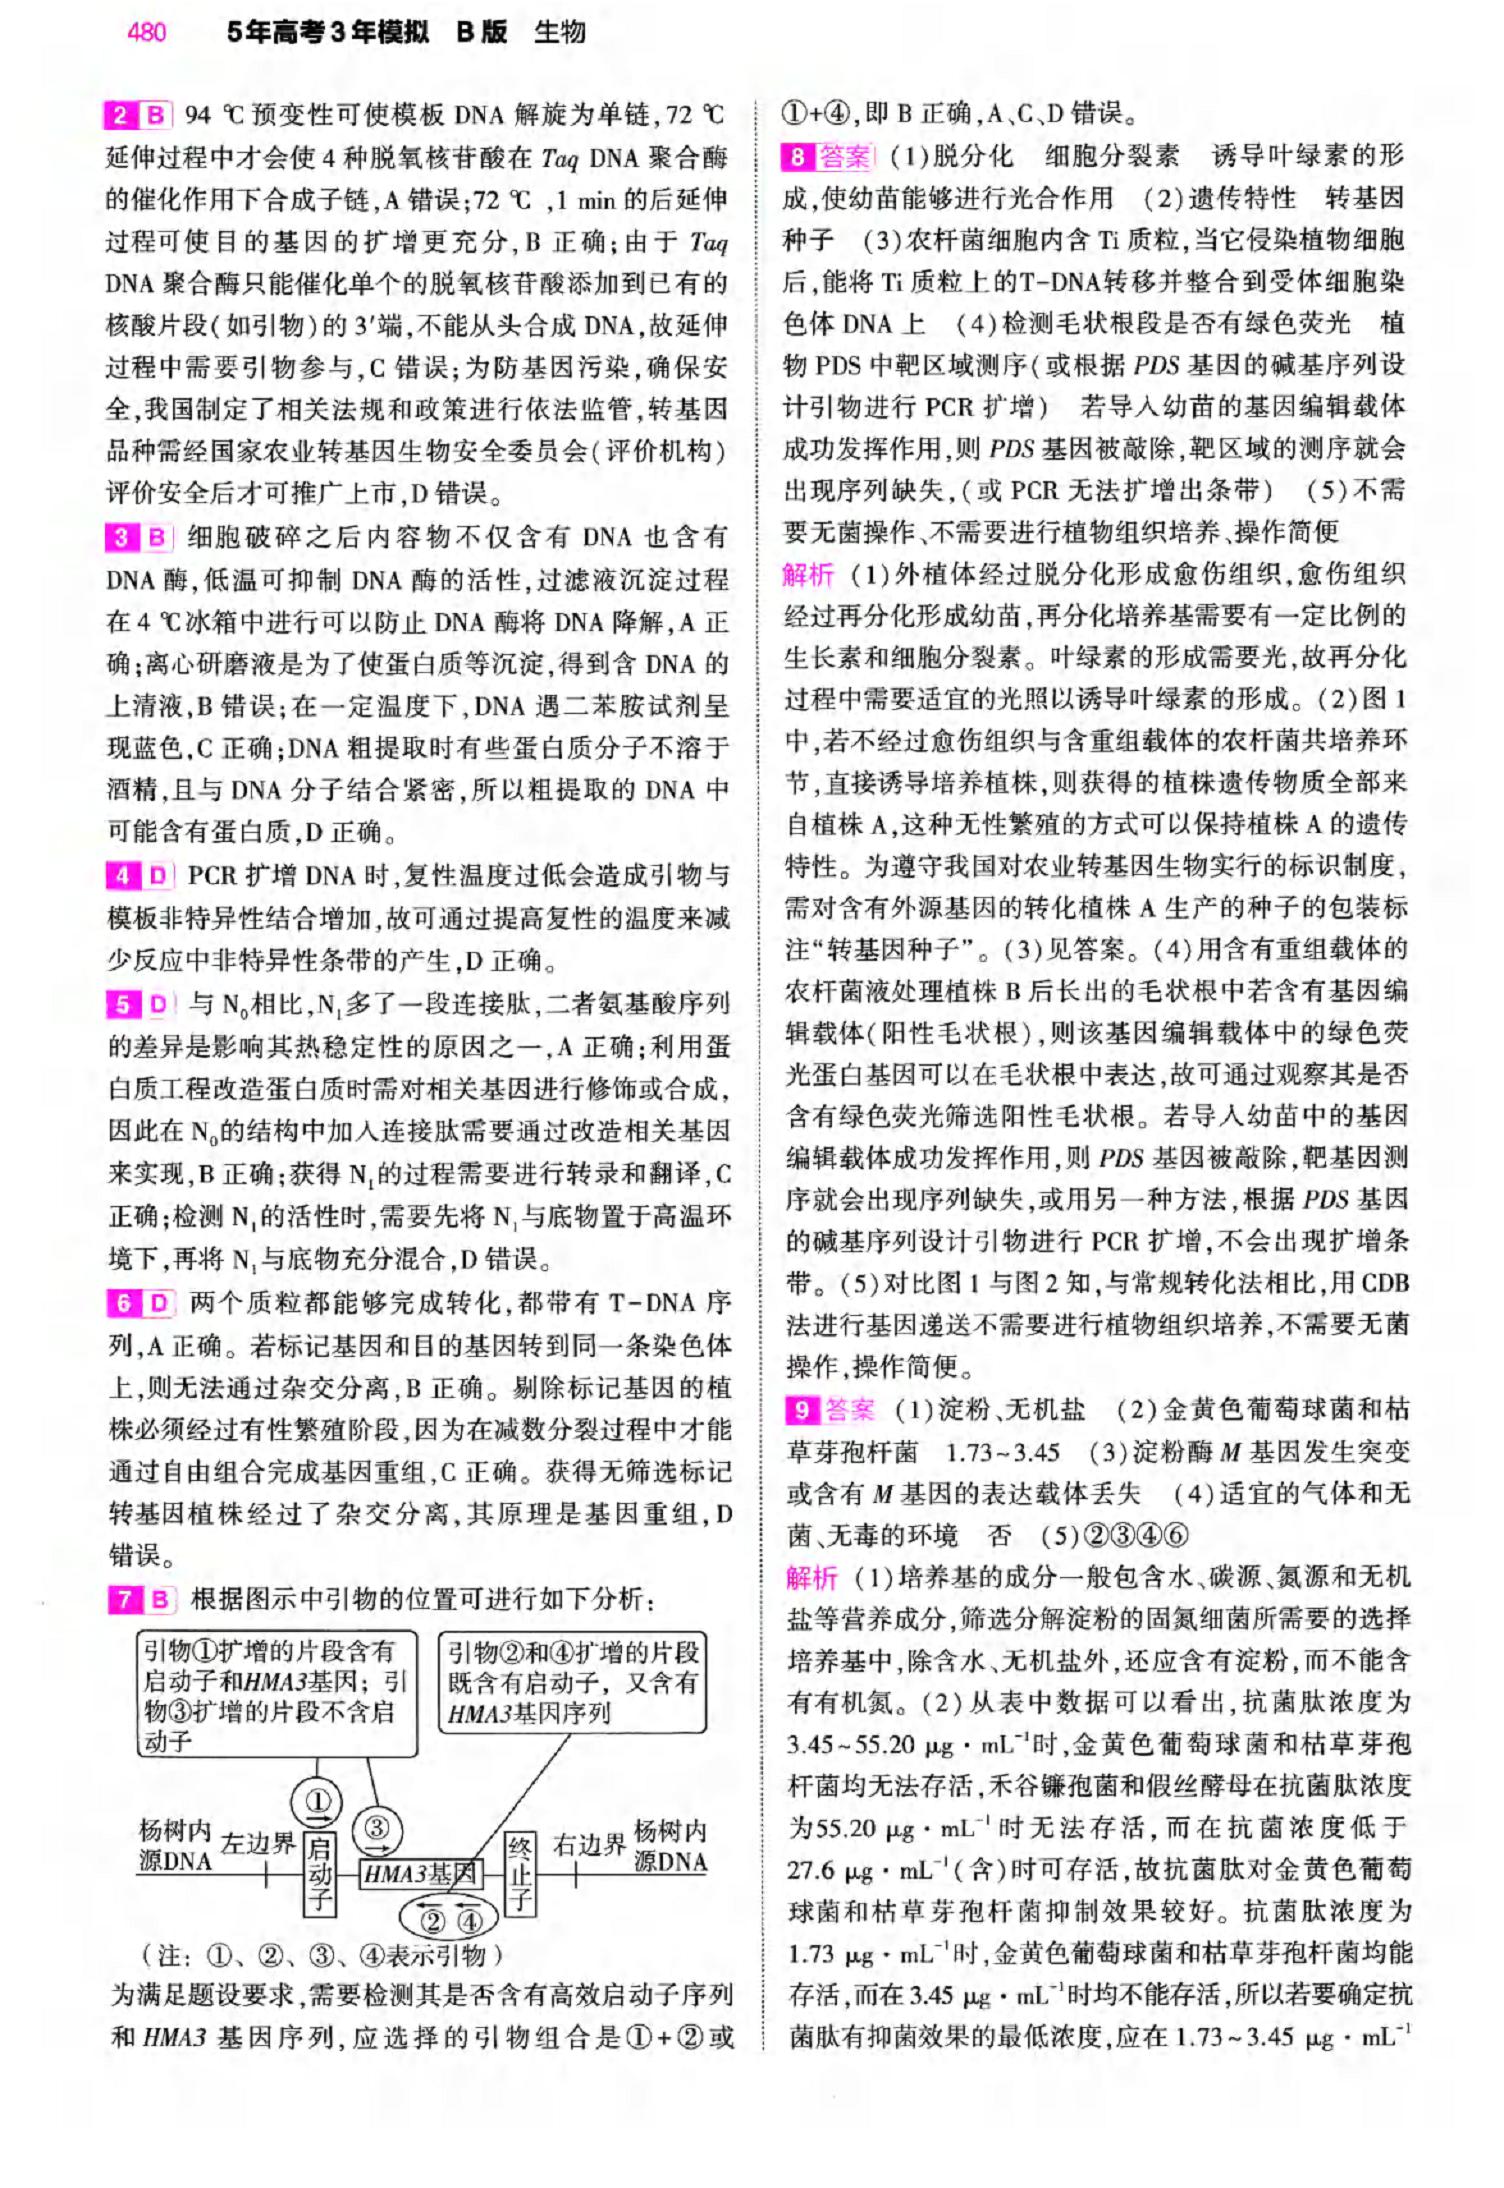 480 5年高考3年模拟 B版 生物
2 B 94 ℃预变性可使模板 DNA 解旋为单链,72 ℃
延伸过程中才会使4种脱氧核苷酸在 Taq DNA 聚合酶
的催化作用下合成子链,A 错误;72 ℃ ,1 min 的后延伸
过程可使目的基因的扩增更充分,B 正确;由于 Taq
DNA 聚合酶只能催化单个的脱氧核苷酸添加到已有的
核酸片段(如引物)的3′端,不能从头合成 DNA,故延伸
过程中需要引物参与,C 错误;为防基因污染,确保安
全,我国制定了相关法规和政策进行依法监管,转基因
品种需经国家农业转基因生物安全委员会(评价机构)
评价安全后才可推广上市,D 错误。
3 B 细胞破碎之后内容物不仅含有 DNA 也含有
DNA 酶,低温可抑制 DNA 酶的活性,过滤液沉淀过程
在4 ℃冰箱中进行可以防止 DNA 酶将 DNA 降解,A 正
确;离心研磨液是为了使蛋白质等沉淀,得到含 DNA 的
上清液,B 错误;在一定温度下,DNA 遇二苯胺试剂呈
现蓝色,C 正确;DNA 粗提取时有些蛋白质分子不溶于
酒精,且与 DNA 分子结合紧密,所以粗提取的 DNA 中
可能含有蛋白质,D 正确。
4 D PCR 扩增 DNA 时,复性温度过低会造成引物与
模板非特异性结合增加,故可通过提高复性的温度来减
少反应中非特异性条带的产生,D 正确。
5 D 与 N₀相比,N₁多了一段连接肽,二者氨基酸序列
的差异是影响其热稳定性的原因之一,A 正确;利用蛋
白质工程改造蛋白质时需对相关基因进行修饰或合成,
因此在 N₀的结构中加入连接肽需要通过改造相关基因
来实现,B 正确;获得 N₁的过程需要进行转录和翻译,C
正确;检测 N₁的活性时,需要先将 N₁与底物置于高温环
境下,再将 N₁与底物充分混合,D 错误。
6 D 两个质粒都能够完成转化,都带有 T-DNA 序
列,A 正确。若标记基因和目的基因转到同一条染色体
上,则无法通过杂交分离,B 正确。剔除标记基因的植
株必须经过有性繁殖阶段,因为在减数分裂过程中才能
通过自由组合完成基因重组,C 正确。获得无筛选标记
转基因植株经过了杂交分离,其原理是基因重组,D
错误。
7 B 根据图示中引物的位置可进行如下分析:
引物①扩增的片段含有
启动子和HMA3基因；引
物③扩增的片段不含启
动子
引物②和④扩增的片段
既含有启动子，又含有
HMA3基因序列
①
③
杨树内
源DNA
左边界
启动子
HMA3基因
终止子
右边界
杨树内
源DNA
② ④
(注：①、②、③、④表示引物)
为满足题设要求,需要检测其是否含有高效启动子序列
和 HMA3 基因序列,应选择的引物组合是①+②或
①+④,即 B 正确,A、C、D 错误。
8 答案 (1)脱分化 细胞分裂素 诱导叶绿素的形
成,使幼苗能够进行光合作用 (2)遗传特性 转基因
种子 (3)农杆菌细胞内含 Ti 质粒,当它侵染植物细胞
后,能将 Ti 质粒上的T-DNA转移并整合到受体细胞染
色体 DNA 上 (4)检测毛状根段是否有绿色荧光 植
物 PDS 中靶区域测序(或根据 PDS 基因的碱基序列设
计引物进行 PCR 扩增) 若导入幼苗的基因编辑载体
成功发挥作用,则 PDS 基因被敲除,靶区域的测序就会
出现序列缺失,(或 PCR 无法扩增出条带) (5)不需
要无菌操作、不需要进行植物组织培养、操作简便
解析 (1)外植体经过脱分化形成愈伤组织,愈伤组织
经过再分化形成幼苗,再分化培养基需要有一定比例的
生长素和细胞分裂素。叶绿素的形成需要光,故再分化
过程中需要适宜的光照以诱导叶绿素的形成。(2)图1
中,若不经过愈伤组织与含重组载体的农杆菌共培养环
节,直接诱导培养植株,则获得的植株遗传物质全部来
自植株 A,这种无性繁殖的方式可以保持植株 A 的遗传
特性。为遵守我国对农业转基因生物实行的标识制度,
需对含有外源基因的转化植株 A 生产的种子的包装标
注“转基因种子”。(3)见答案。(4)用含有重组载体的
农杆菌液处理植株 B 后长出的毛状根中若含有基因编
辑载体(阳性毛状根),则该基因编辑载体中的绿色荧
光蛋白基因可以在毛状根中表达,故可通过观察其是否
含有绿色荧光筛选阳性毛状根。若导入幼苗中的基因
编辑载体成功发挥作用,则 PDS 基因被敲除,靶基因测
序就会出现序列缺失,或用另一种方法,根据 PDS 基因
的碱基序列设计引物进行 PCR 扩增,不会出现扩增条
带。(5)对比图1与图2知,与常规转化法相比,用CDB
法进行基因递送不需要进行植物组织培养,不需要无菌
操作,操作简便。
9 答案 (1)淀粉、无机盐 (2)金黄色葡萄球菌和枯
草芽孢杆菌 1.73~3.45 (3)淀粉酶 M 基因发生突变
或含有 M 基因的表达载体丢失 (4)适宜的气体和无
菌、无毒的环境 否 (5)②③④⑥
解析 (1)培养基的成分一般包含水、碳源、氮源和无机
盐等营养成分,筛选分解淀粉的固氮细菌所需要的选择
培养基中,除含水、无机盐外,还应含有淀粉,而不能含
有有机氮。(2)从表中数据可以看出,抗菌肽浓度为
3.45~55.20 μg·mL⁻¹时,金黄色葡萄球菌和枯草芽孢
杆菌均无法存活,禾谷镰孢菌和假丝酵母在抗菌肽浓度
为55.20 μg·mL⁻¹时无法存活,而在抗菌浓度低于
27.6 μg·mL⁻¹(含)时可存活,故抗菌肽对金黄色葡萄
球菌和枯草芽孢杆菌抑制效果较好。抗菌肽浓度为
1.73 μg·mL⁻¹时,金黄色葡萄球菌和枯草芽孢杆菌均能
存活,而在3.45 μg·mL⁻¹时均不能存活,所以若要确定抗
菌肽有抑菌效果的最低浓度,应在1.73~3.45 μg·mL⁻¹